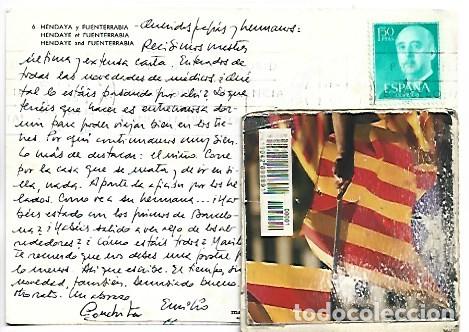 6 HENDAYA y FUENTERRABIA
HENDAYE et FUENTERRABIA
HENDAYE and FUENTERRABIA
Queridos papás y hermanos:
Recibimos vuestra
última y extensa carta. Enterados de
todas las novedades de médicos. ¿Qué
tal lo estáis pasando por ahí? Lo que
tenéis que hacer es entrenaros a dor-
mir para poder viajar bien en los tre-
nes. Por aquí continuamos muy bien.
Lo más de destacar: el niño. Corre
por la casa que se mata y de ir en si-
lla, nada. Aparte la afición por los he-
lados. Como va a su hermana...
estado con los primos de Barcelo-
na? ¿Habéis salido a ver algo de los al-
rededores? ¿Cómo estáis todos?
te recuerdo que nos debes una postal
lo menos. Así que escribe. El tiempo, sin
novedad, también.
Un abrazo
Conchita Emilio
1'50
PTAS
ESPAÑA
CORREOS
00001
todocoleccion.net